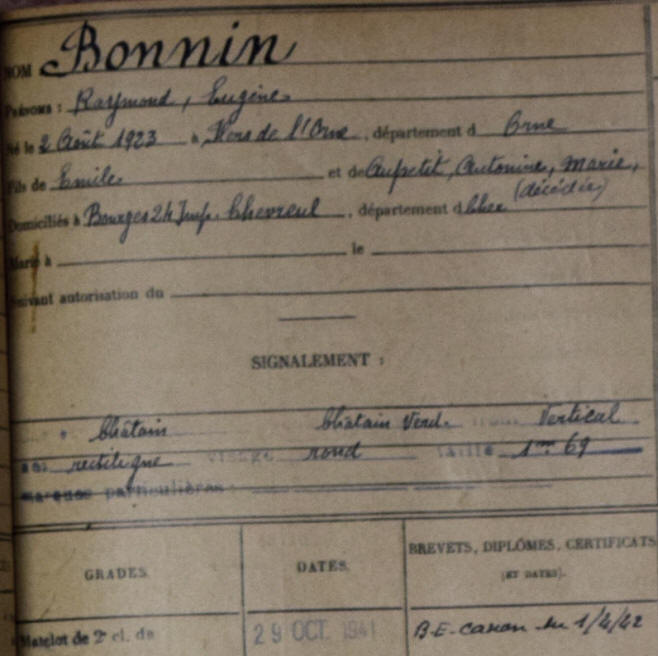 NOM Bonnin
Prénoms : Raymond, Eugène
Né le 2 Août 1923 à Flers de l'Orne, département d Orne
Fils de Emile et de Aupetit, Antonine, Marie,
(décédée)
Domiciliés à Bourges 24 Imp. Chevreul, département d Cher
Marié à le
Suivant autorisation du
SIGNALEMENT :
Châtain Châtain Verd. Vertical
rectiligne visage rond taille 1m 69
marques particulières :
GRADES. DATES. BREVETS, DIPLÔMES, CERTIFICATS
(ET DATES).
Matelot de 2e cl. de 29 OCT. 1941 B.E. canon du 1/4/42